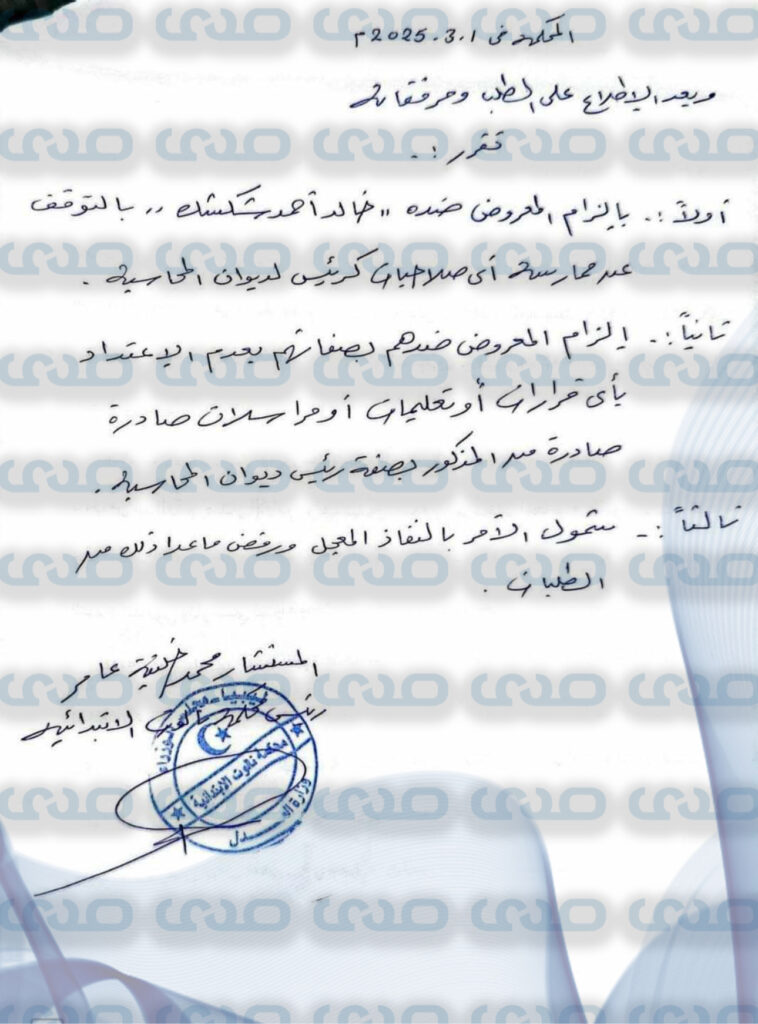 المحكمة في 2025.3.1م
وبعد الإطلاع على الطلب ومرفقاته
تقرر :-
أولاً :- بإلزام المعروض ضده "خالد أحمد شكشك" بالتوقف
عن ممارسة أي صلاحيات كرئيس لديوان المحاسبة .
ثانياً :- إلزام المعروض ضدهم بصفاتهم بعدم الإعتداد
بأي قرارات أو تعليمات أو مراسلات صادرة
صادرة من المذكور بصفة رئيس ديوان المحاسبة .
ثالثاً :- شمول الأمر بالنفاذ المعجل ورفض ماعدا ذلك من
الطلبات .
المستشار محمد خليفة عامر
رئيس محكمة نالوت الابتدائية
ليبيا - مجلس الوزراء
محكمة نالوت الابتدائية
وزارة العدل
صدى